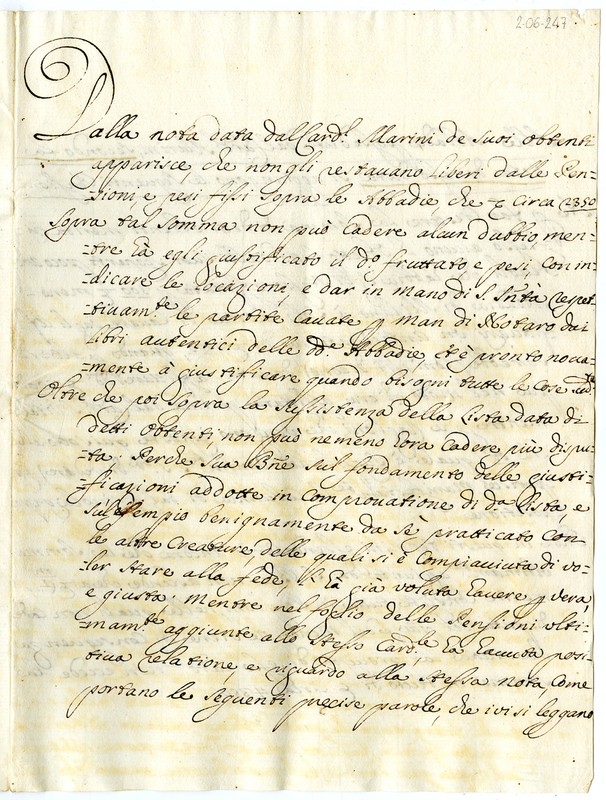 2-06-247
Dalla nota data dal Card.l Marini de suoi obtenti
apparisce, che non gli restavano liberi dalle Pen-
-sioni, e pesi fissi sopra le Abbadie, che circa 2350
Sopra tal somma non può cadere alcun dubbio men-
-tre hà egli giustificato il d.o fruttato, e pesi, con in-
-dicare le locazioni, e dar in mano di S. Sntà respet-
-tivam.te le partite cavate p man di Notaro dai
libri autentici delle dd.e Abbadie, et è pronto nova-
-mente à giustificare quando bisogni tutte le cose sud.te
Oltre che poi sopra la sussistenza della lista data di
detti obtenti non può nemeno hora cadere più dispu-
-ta: Perche Sua Bne sul fondamento delle giusti-
-ficazioni addotte in comprovatione di d.a lista, e
sull'esempio benignamente da sè pratticato con
le altre Creature, delle quali si è compiaciuta di vo-
-ler stare alla fede, l'hà già voluta havere p vera,
e giusta: mentre nel foglio delle Pensioni ulti-
-mam.te aggiunte allo stesso Card.le hà havuta posi-
tiva relatione, e riguardo alla stessa nota, come
portano le seguenti precise parole, che ivi si leggano